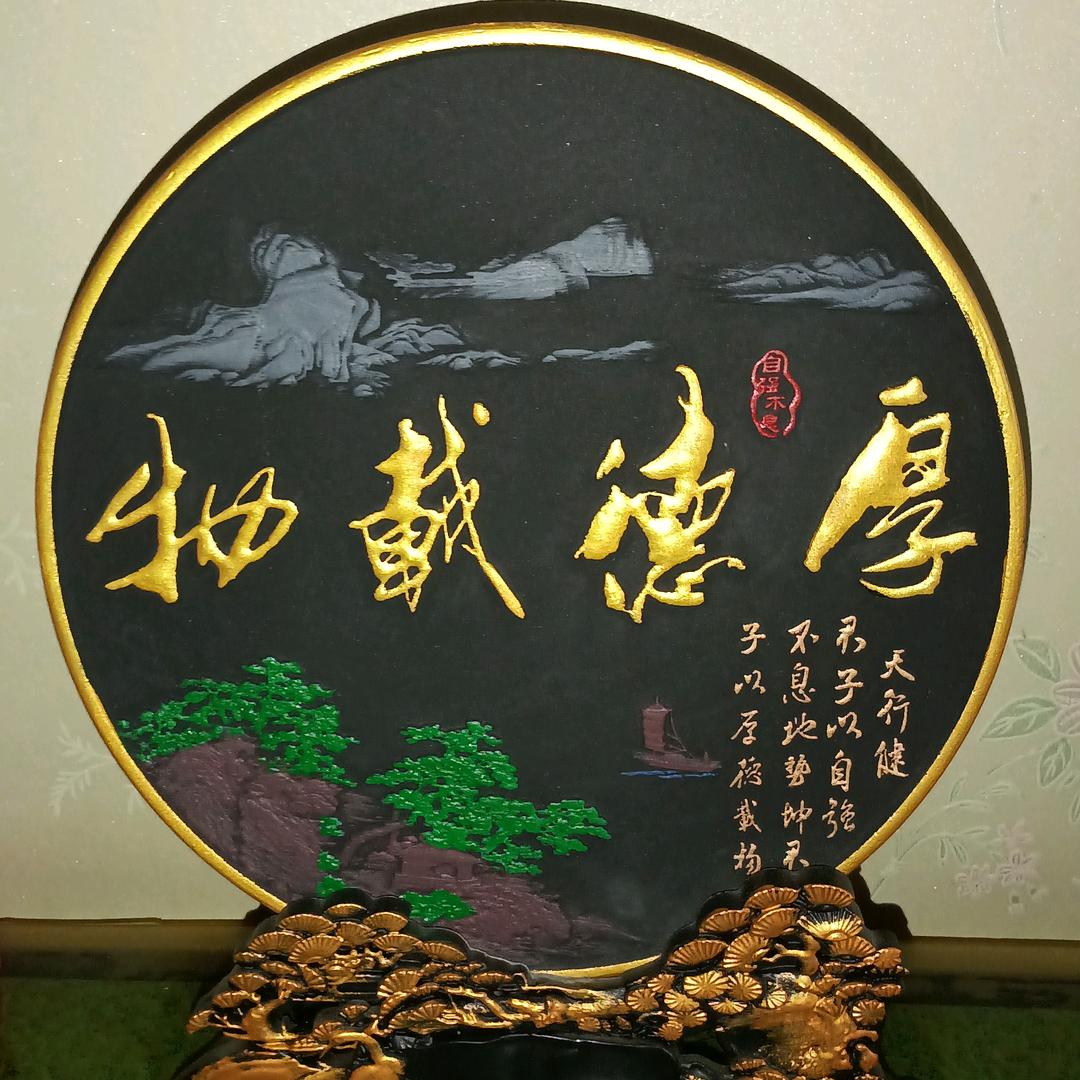 厚德载物
自强不息
天行健
君子以自强
不息地势坤君
子以厚德载物